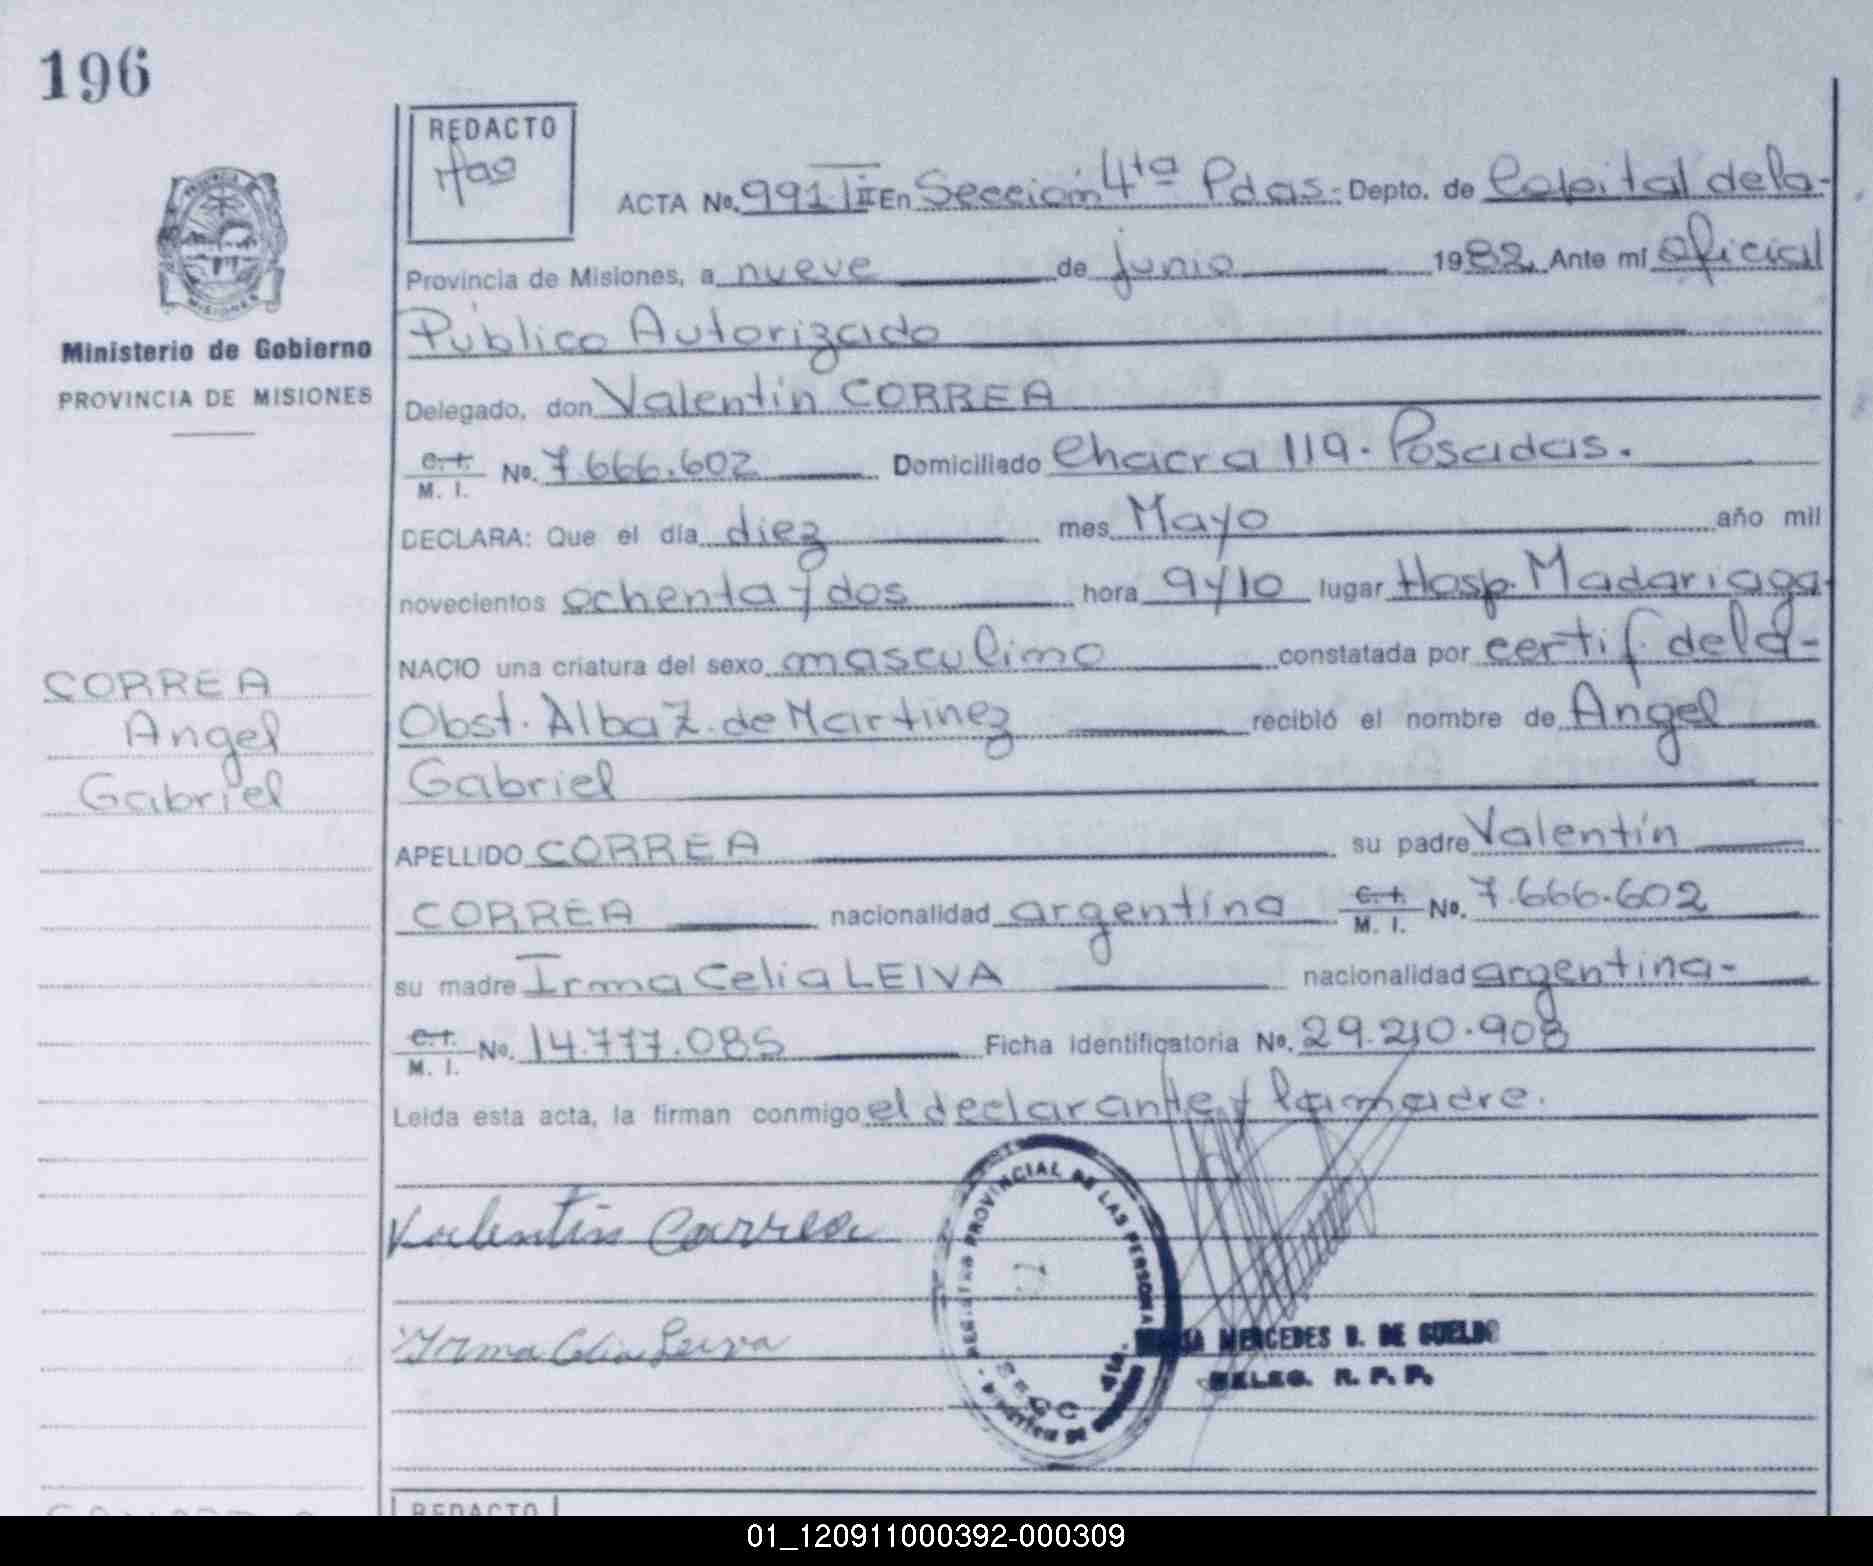 196
REDACTO
ACTA No. 991 II En Sección 4ta Pdas.- Depto. de Capital de la-
Provincia de Misiones, a nueve de junio 1982 Ante mí oficial
Público Autorizado
Ministerio de Gobierno
PROVINCIA DE MISIONES
Delegado, don Valentín CORREA
C.I. M. I. No. 7.666.602 Domiciliado Chacra 119. Posadas.
DECLARA: Que el día diez mes Mayo año mil
novecientos ochenta y dos hora 9 y 10 lugar Hosp. Madariaga-
NACIO una criatura del sexo masculino constatada por certif de la-
Obst. Alba Z. de Martinez recibió el nombre de Angel
Gabriel
CORREA
Angel
Gabriel
APELLIDO CORREA su padre Valentín
CORREA nacionalidad argentina C.I. M. I. No. 7.666.602
su madre Irma Celia LEIVA nacionalidad argentina-
C.I. M. I. No. 14.777.085 Ficha identificatoria No. 29.210.908
Leída esta acta, la firman conmigo el declarante y la madre.
Valentín Correa
Irma Celia Leiva
REGISTRO PROVINCIAL DE LAS PERSONAS
MERCEDES B. DE GUELDO
DELEG. R. P. P.
REDACTO
01_120911000392-000309